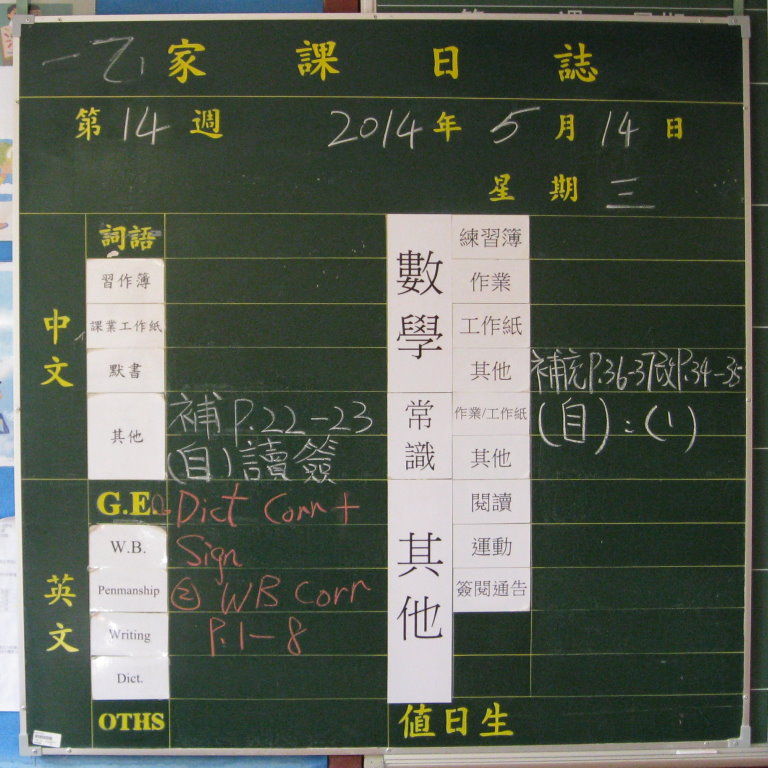 一乙 家課日誌
第 14 週 2014 年 5 月 14 日
星期 三
中文
詞語
習作簿
課業工作紙
默書
其他
補 P.22-23
(自) 讀簽
英文
G.E.
W.B.
Penmanship
Writing
Dict.
OTHS
Dict Corr +
Sign
② WB Corr
P.1-8
數學
練習簿
作業
工作紙
其他
補充P.36-37改P.34-35
常識
作業/工作紙
(自):(1)
其他
其他
閱讀
運動
簽閱通告
值日生